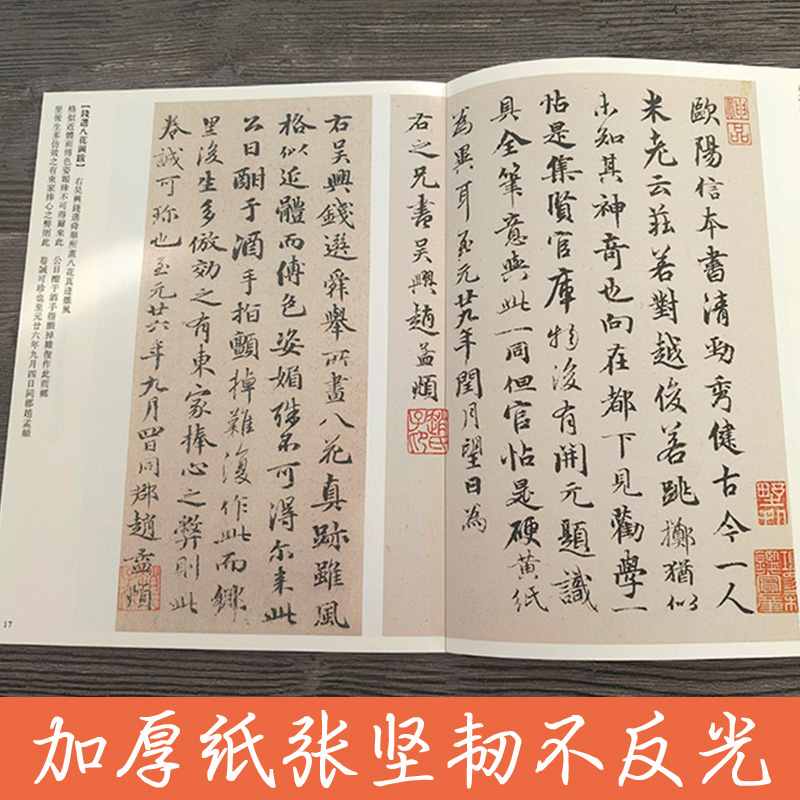 歐陽信本書清勁秀健古今一人
米老云莊若對越俊若跳擲猶似
未知其神奇也向在都下見勸學一
帖是集賢官庫物後有開元題識
具全筆意與此一同但官帖是硬黃紙
為異耳至元廿九年閏月望日為
右之兄書吳興趙孟頫
神品
趙氏子昂
右吳興錢選舜舉所畫八花真跡雖風
格似近體而傅色姿媚殊不可得尔来此
公日酣于酒手指顫掉難復作此而鄉
里後生多倣效之有東家捧心之弊則此
卷誠可珍也至元廿六年九月四日同郡趙孟頫
【錢選八花圖跋】 右吳興錢選舜舉所畫八花真迹雖風
格似近體而傅色姿媚殊不可得爾來此 公日酣于酒手指顫掉難復作此而鄉
里後生多仿效之有東家捧心之弊則此 卷誠可珍也至元廿六年九月四日同郷趙孟頫
17
加厚纸张坚韧不反光